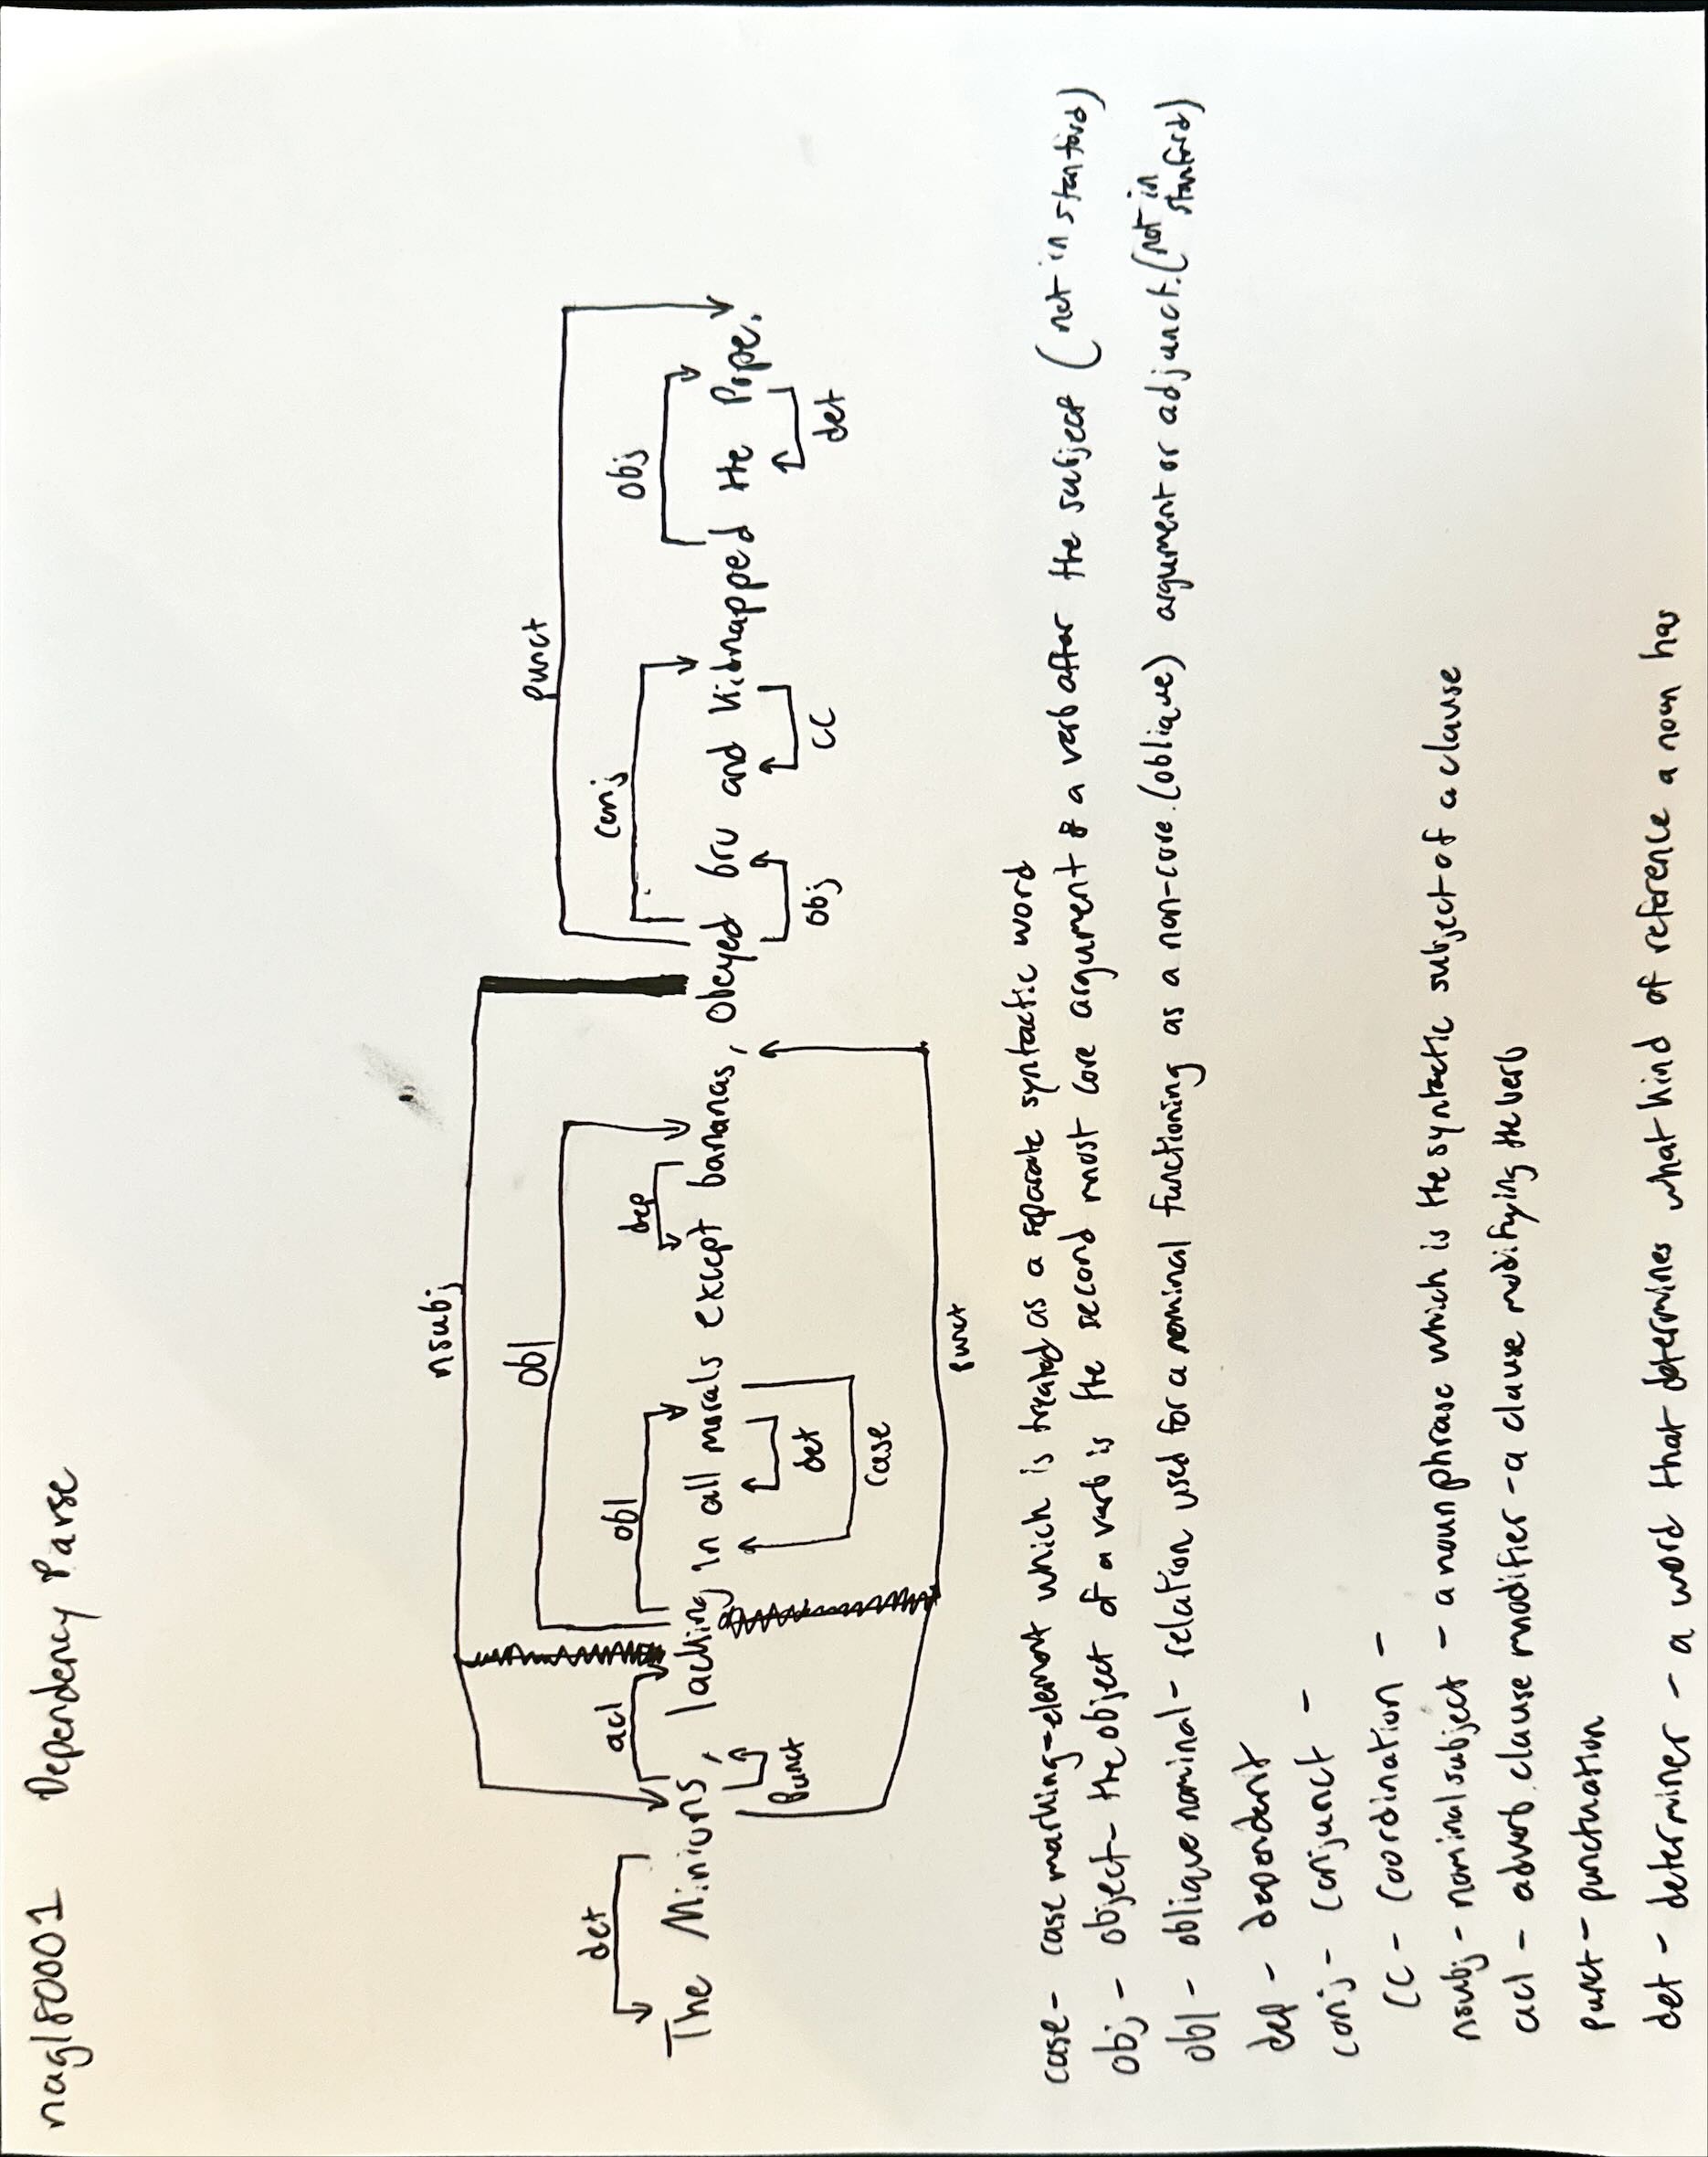 nag180001 Dependency Parse
nsubj
obl
punct
det
acl
obl
dep
conj
obj
The Minions, lacking in all morals except bananas, obeyed Gru and kidnapped the Pope.
punct
det
case
obj
cc
det
punct
case - case marking - element which is treated as a separate syntactic word
obj - object - the object of a verb is the second most core argument of a verb after the subject (not in stanford)
obl - oblique nominal - relation used for a nominal functioning as a non-core (oblique) argument or adjunct. (not in stanford)
dep - dependent
conj - conjunct -
CC - coordination -
nsubj - nominal subject - a noun phrase which is the syntactic subject of a clause
acl - adverb clause modifier - a clause modifying the verb
punct - punctuation
det - determiner - a word that determines what kind of reference a noun has